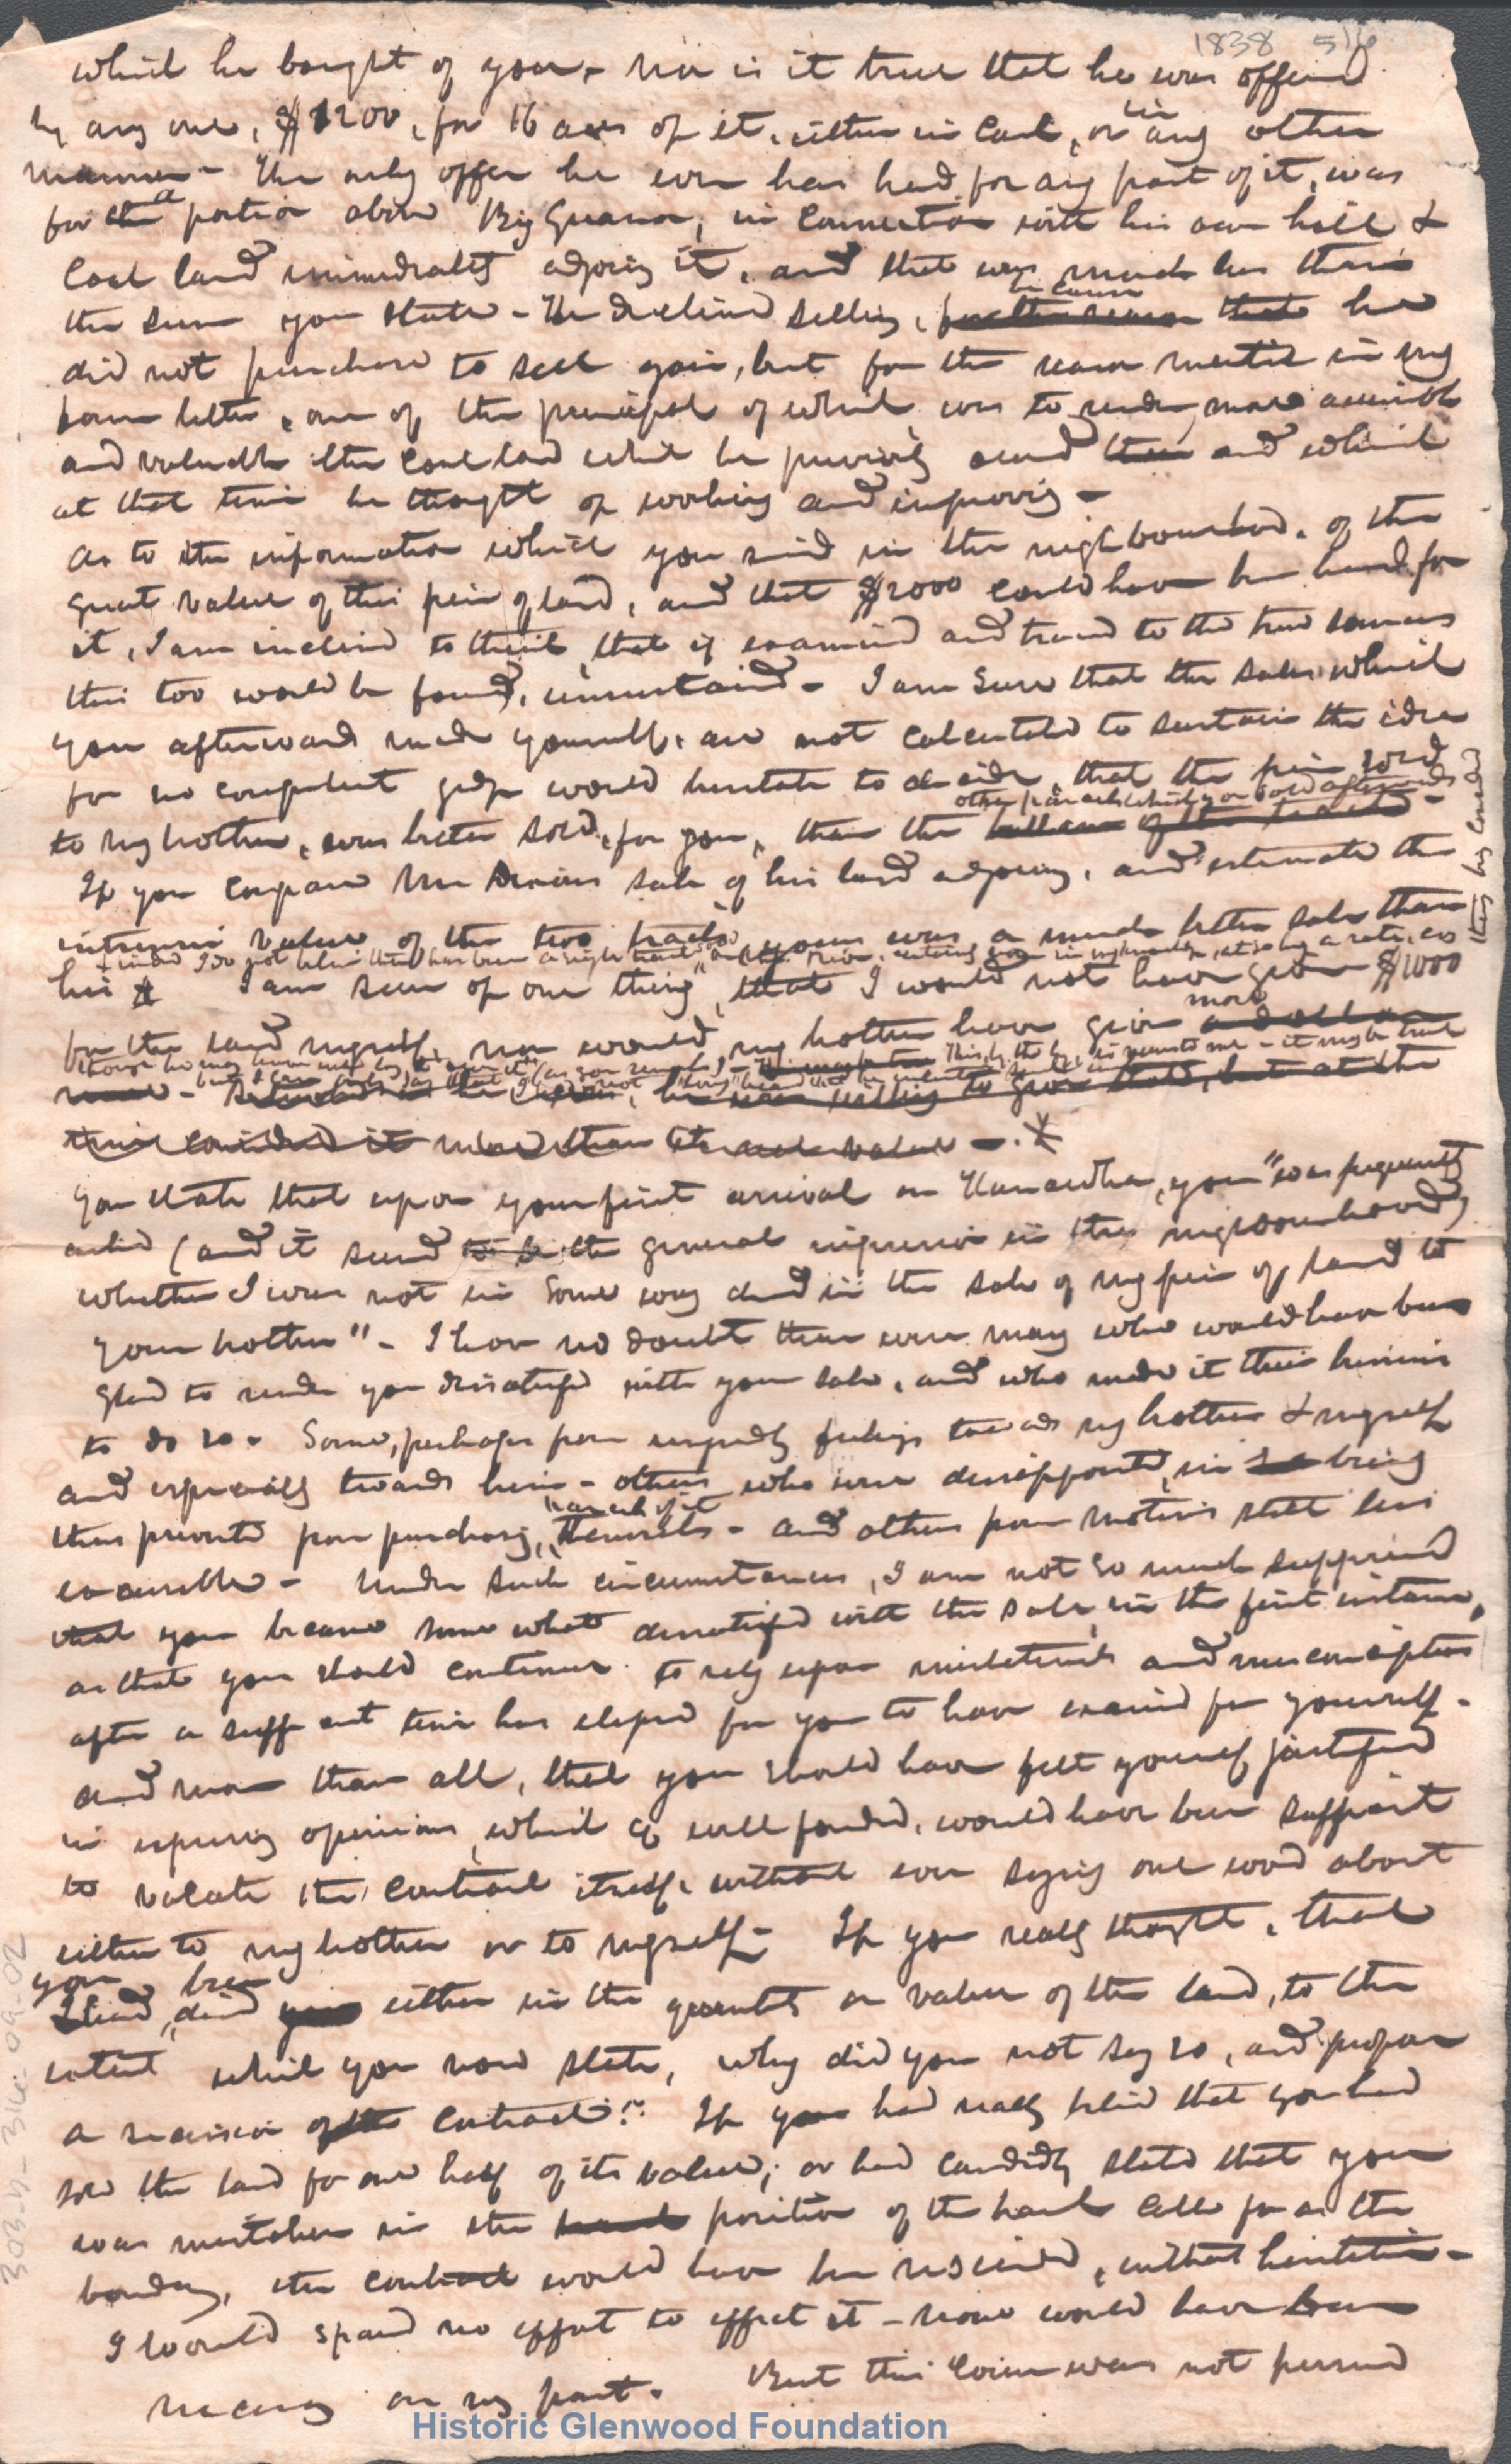 1838 5/6
which he bought of you - Nor is it true that he was offered
by any one, $1200, for 16 acres of it, either in Cash, or in any other
manner - The only offer he ever has had, for any part of it, was
for the a portion above Big Guano, in connection with his own hill &
Coal land immediately adjoing it, and that was much less than
the sum you state - He declined selling, for the reason that because he
did not purchase to sell again, but for the reason mentd in my
former letter, one of the principal of which was to render more accessible
and valuable the coal land which he previously owned then and which
at that time he thought of working and improving -
As to the information which you recd in the neighbourhood, of the
great value of this piece of land, and that $2000 could have been had for
it, I am inclined to think, that if examined and traced to the true sources
this too would be found, unsustained - I am sure that the sales which
you afterwards made yourself, are not calculated to sustain the idea
for no competent judge would hesitate to decide, that the piece sold
other parcels which you sold afterwards
to my brother, was better sold, for you, than the ballance of the tract -
If you compare Mr sale of his land adjoing, and estimate the
intrinsic value of the two tracts, yours was a much better sale than
his I am sure of one thing, that I would not have given $1000
for the land myself, nor would my brother have given more
time considered it more than its real value -
You state that upon your first arrival on Kanawha, you "was frequently
asked (and it seemed to be the general impression in the neighbourhood)
whether I was not in some way decd in the sale of my piece of land to
your brother" - I have no doubt there were many who would have been
glad to render you dissatisfied with your sale, and who made it their business
to do so - Some, perhaps from unfriendly feelings towards my brother & myself
and especially towards him - others who were disappointed, in being
thus prevented from purchasing, themselves - and others from motives still less
excusable - Under such circumstances, I am not so much surprised
that you became some what dissatisfied with the sale, in the first instance,
as that you should continue to rely upon misstatements and misconceptions
after a sufficient time has elapsed for you to have examined for yourself -
and more than all, that you should have felt yourself justified
in expressing opinions, which if well founded, would have been sufficient
to vacate the contract itself, without ever saying one word about
either to my brother or to myself - If you really thought, that
you had been decd either in the quantity or value of the land, to the
extent which you now state, why did you not say so, and propose
a recision of the contract? If you had really believd that you had
sold the land for one half of its value; or had candidly stated that you
was mistaken in the position of the bank called for as the
boundary, the contract would have been rescinded, without hesitation -
I would spared no effort to effect it - none would have been
necessary on my part. But this course was not pursued
303.4-316.09.02
Historic Glenwood Foundation